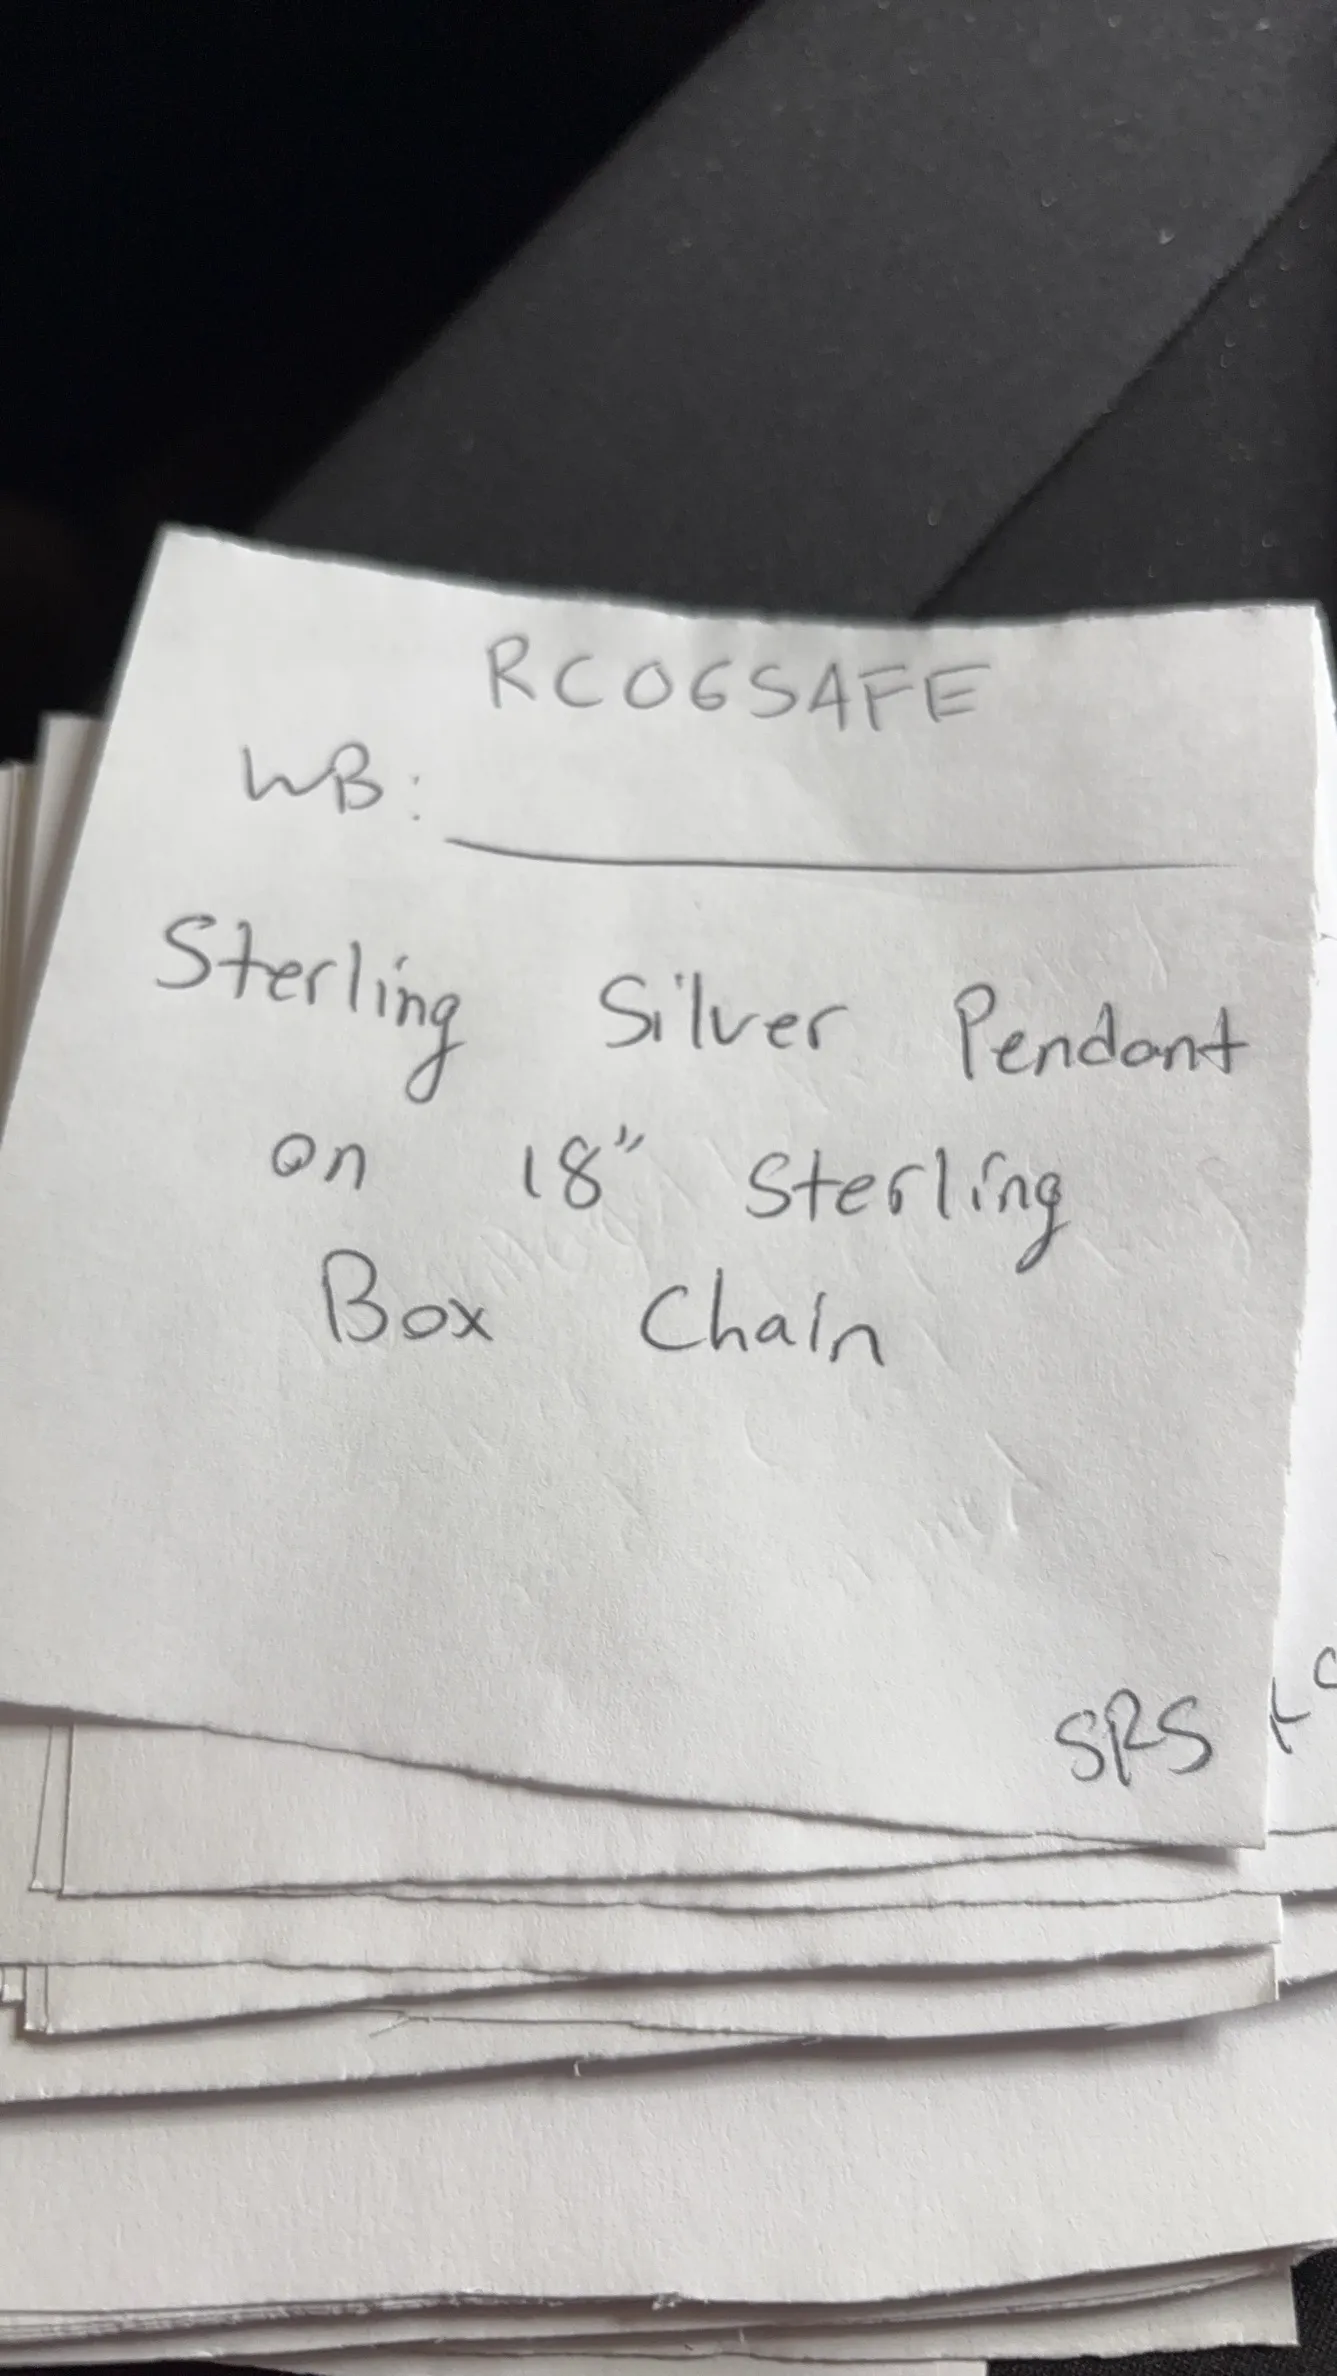 RC06SAFE
WB:
Sterling Silver Pendant
on 18" Sterling
Box Chain
SRS